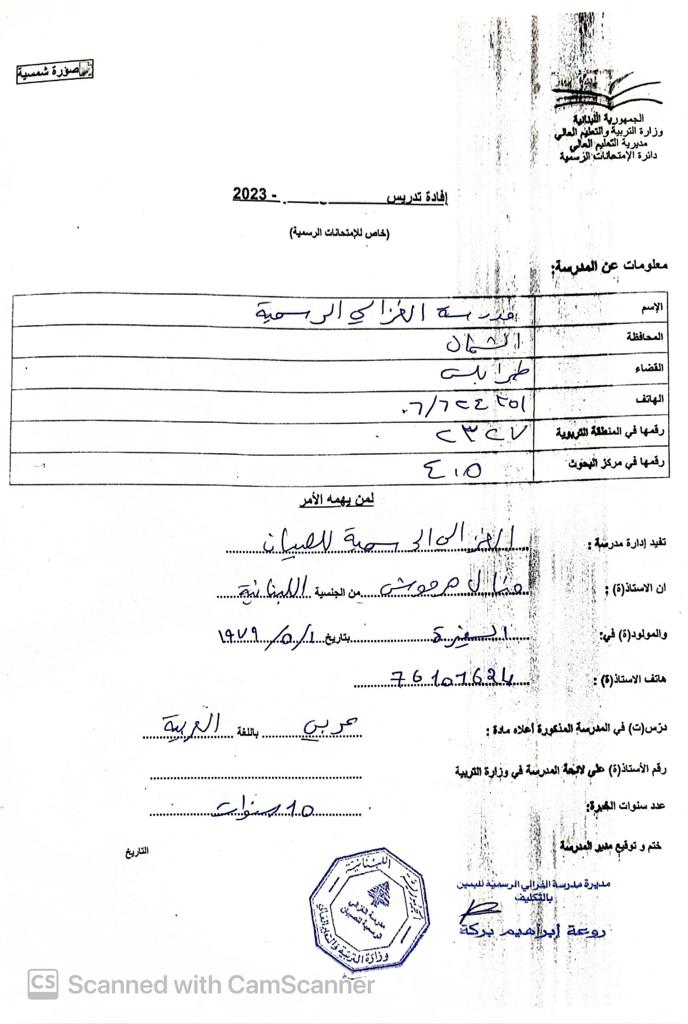 صورة شمسية
الجمهورية اللبنانية
وزارة التربية والتعليم العالي
مديرية التعليم العالي
دائرة الإمتحانات الرسمية
إفادة تدريس ـــــــ - 2023
(خاص للإمتحانات الرسمية)
معلومات عن المدرسة:
الإسم مدرسة الغزالي الرسمية
المحافظة الشمال
القضاء طرابلس
الهاتف ٠٦/٦٢٤٣٥١
رقمها في المنطقة التربوية ٢٣٢٧
رقمها في مركز البحوث ٤٠٥
لمن يهمه الأمر
تفيد إدارة مدرسة : الغزالي الرسمية للصبيان
ان الاستاذ(ة) : منال هرموش من الجنسية اللبنانية
والمولود(ة) في: السفيرة بتاريخ ١٩٧٩/٥/١
هاتف الاستاذ(ة) : 76101624
درّس(ت) في المدرسة المذكورة أعلاه مادة : عربي باللغة العربية
رقم الأستاذ(ة) على لائحة المدرسة في وزارة التربية
عدد سنوات الخبرة: 10 سنوات
ختم و توقيع مدير المدرسة التاريخ
مديرة مدرسة الغزالي الرسمية للبنين
بالتكليف
روعة إبراهيم بركة
الجمهورية اللبنانية
مدرسة الغزالي
الرسمية للصبيان
وزارة التربية والتعليم العالي
CS Scanned with CamScanner